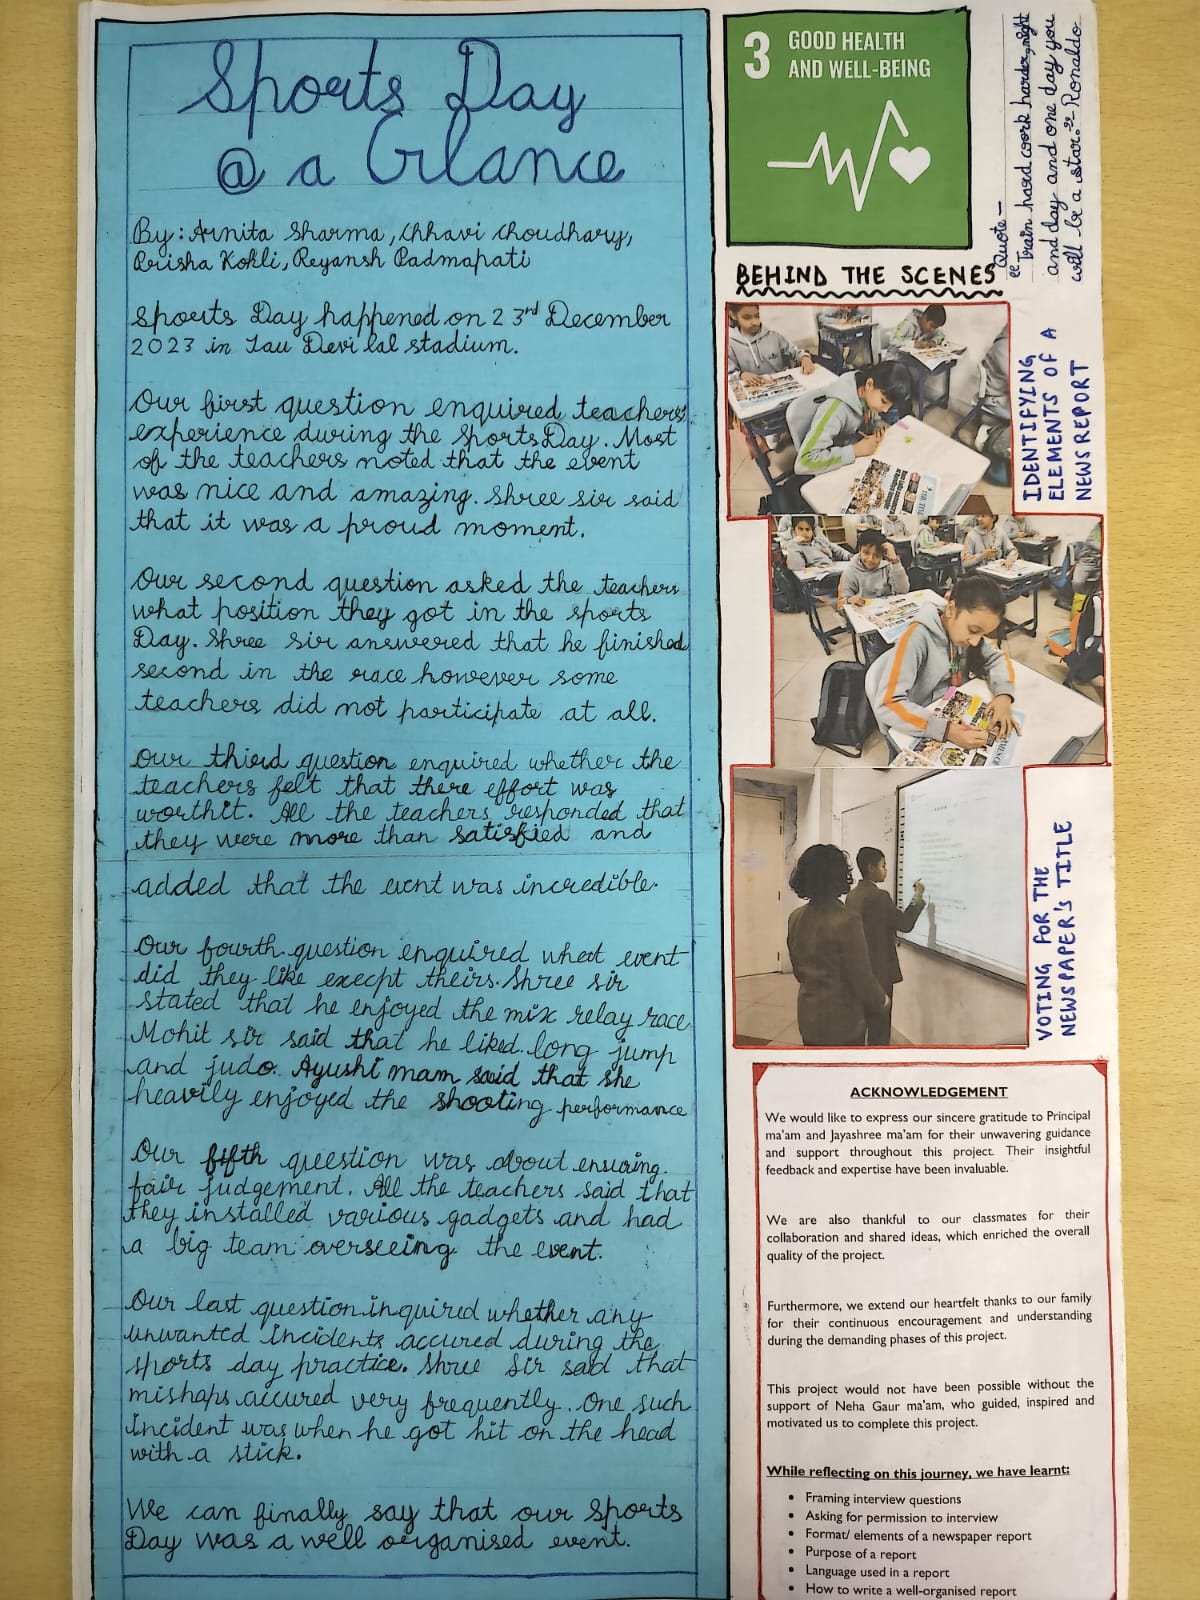 Sports Day
@ a Glance
By: Arnita Sharma, Chhavi Choudhary,
Prisha Kohli, Reyansh Padmapati
Sports Day happened on 23rd December
2023 in Tau Devi lal stadium.
Our first question enquired teachers'
experience during the Sports Day. Most
of the teachers noted that the event
was nice and amazing. Shree sir said
that it was a proud moment.
Our second question asked the teachers
what position they got in the sports
Day. Shree sir answered that he finished
second in the race however some
teachers did not participate at all.
Our third question enquired whether the
teachers felt that there effort was
worthit. All the teachers responded that
they were more than satisfied and
added that the event was incredible.
Our fourth question enquired what event
did they like execpt theirs. Shree sir
stated that he enjoyed the mix relay race
Mohit sir said that he liked long jump
and judo. Ayushi mam said that she
heavily enjoyed the shooting performance
Our fifth question was about ensuring
fair judgement. All the teachers said that
they installed various gadgets and had
a big team overseeing the event.
Our last question inquired whether any
unwanted incidents accured during the
sports day practice. Shree Sir said that
mishaps accured very frequently. One such
incident was when he got hit on the head
with a stick.
We can finally say that our Sports
Day was a well organised event.
3 GOOD HEALTH
AND WELL-BEING
Quote –
"Train hard work harder, night
and day and one day you
will be a star." - Ronaldo
BEHIND THE SCENES
IDENTIFYING
ELEMENTS OF A
NEWS REPORT
VOTING FOR THE
NEWSPAPER'S TITLE
ACKNOWLEDGEMENT
We would like to express our sincere gratitude to Principal
ma'am and Jayashree ma'am for their unwavering guidance
and support throughout this project. Their insightful
feedback and expertise have been invaluable.
We are also thankful to our classmates for their
collaboration and shared ideas, which enriched the overall
quality of the project.
Furthermore, we extend our heartfelt thanks to our family
for their continuous encouragement and understanding
during the demanding phases of this project.
This project would not have been possible without the
support of Neha Gaur ma'am, who guided, inspired and
motivated us to complete this project.
While reflecting on this journey, we have learnt:
• Framing interview questions
• Asking for permission to interview
• Format/ elements of a newspaper report
• Purpose of a report
• Language used in a report
• How to write a well-organised report